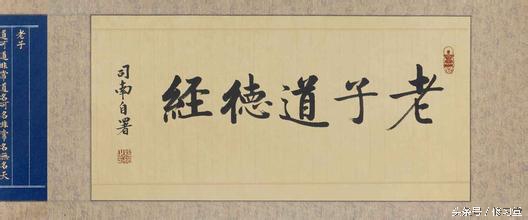 老子道德經
司南自署
老子
道可道非常道名可名非常名無名天
头条号